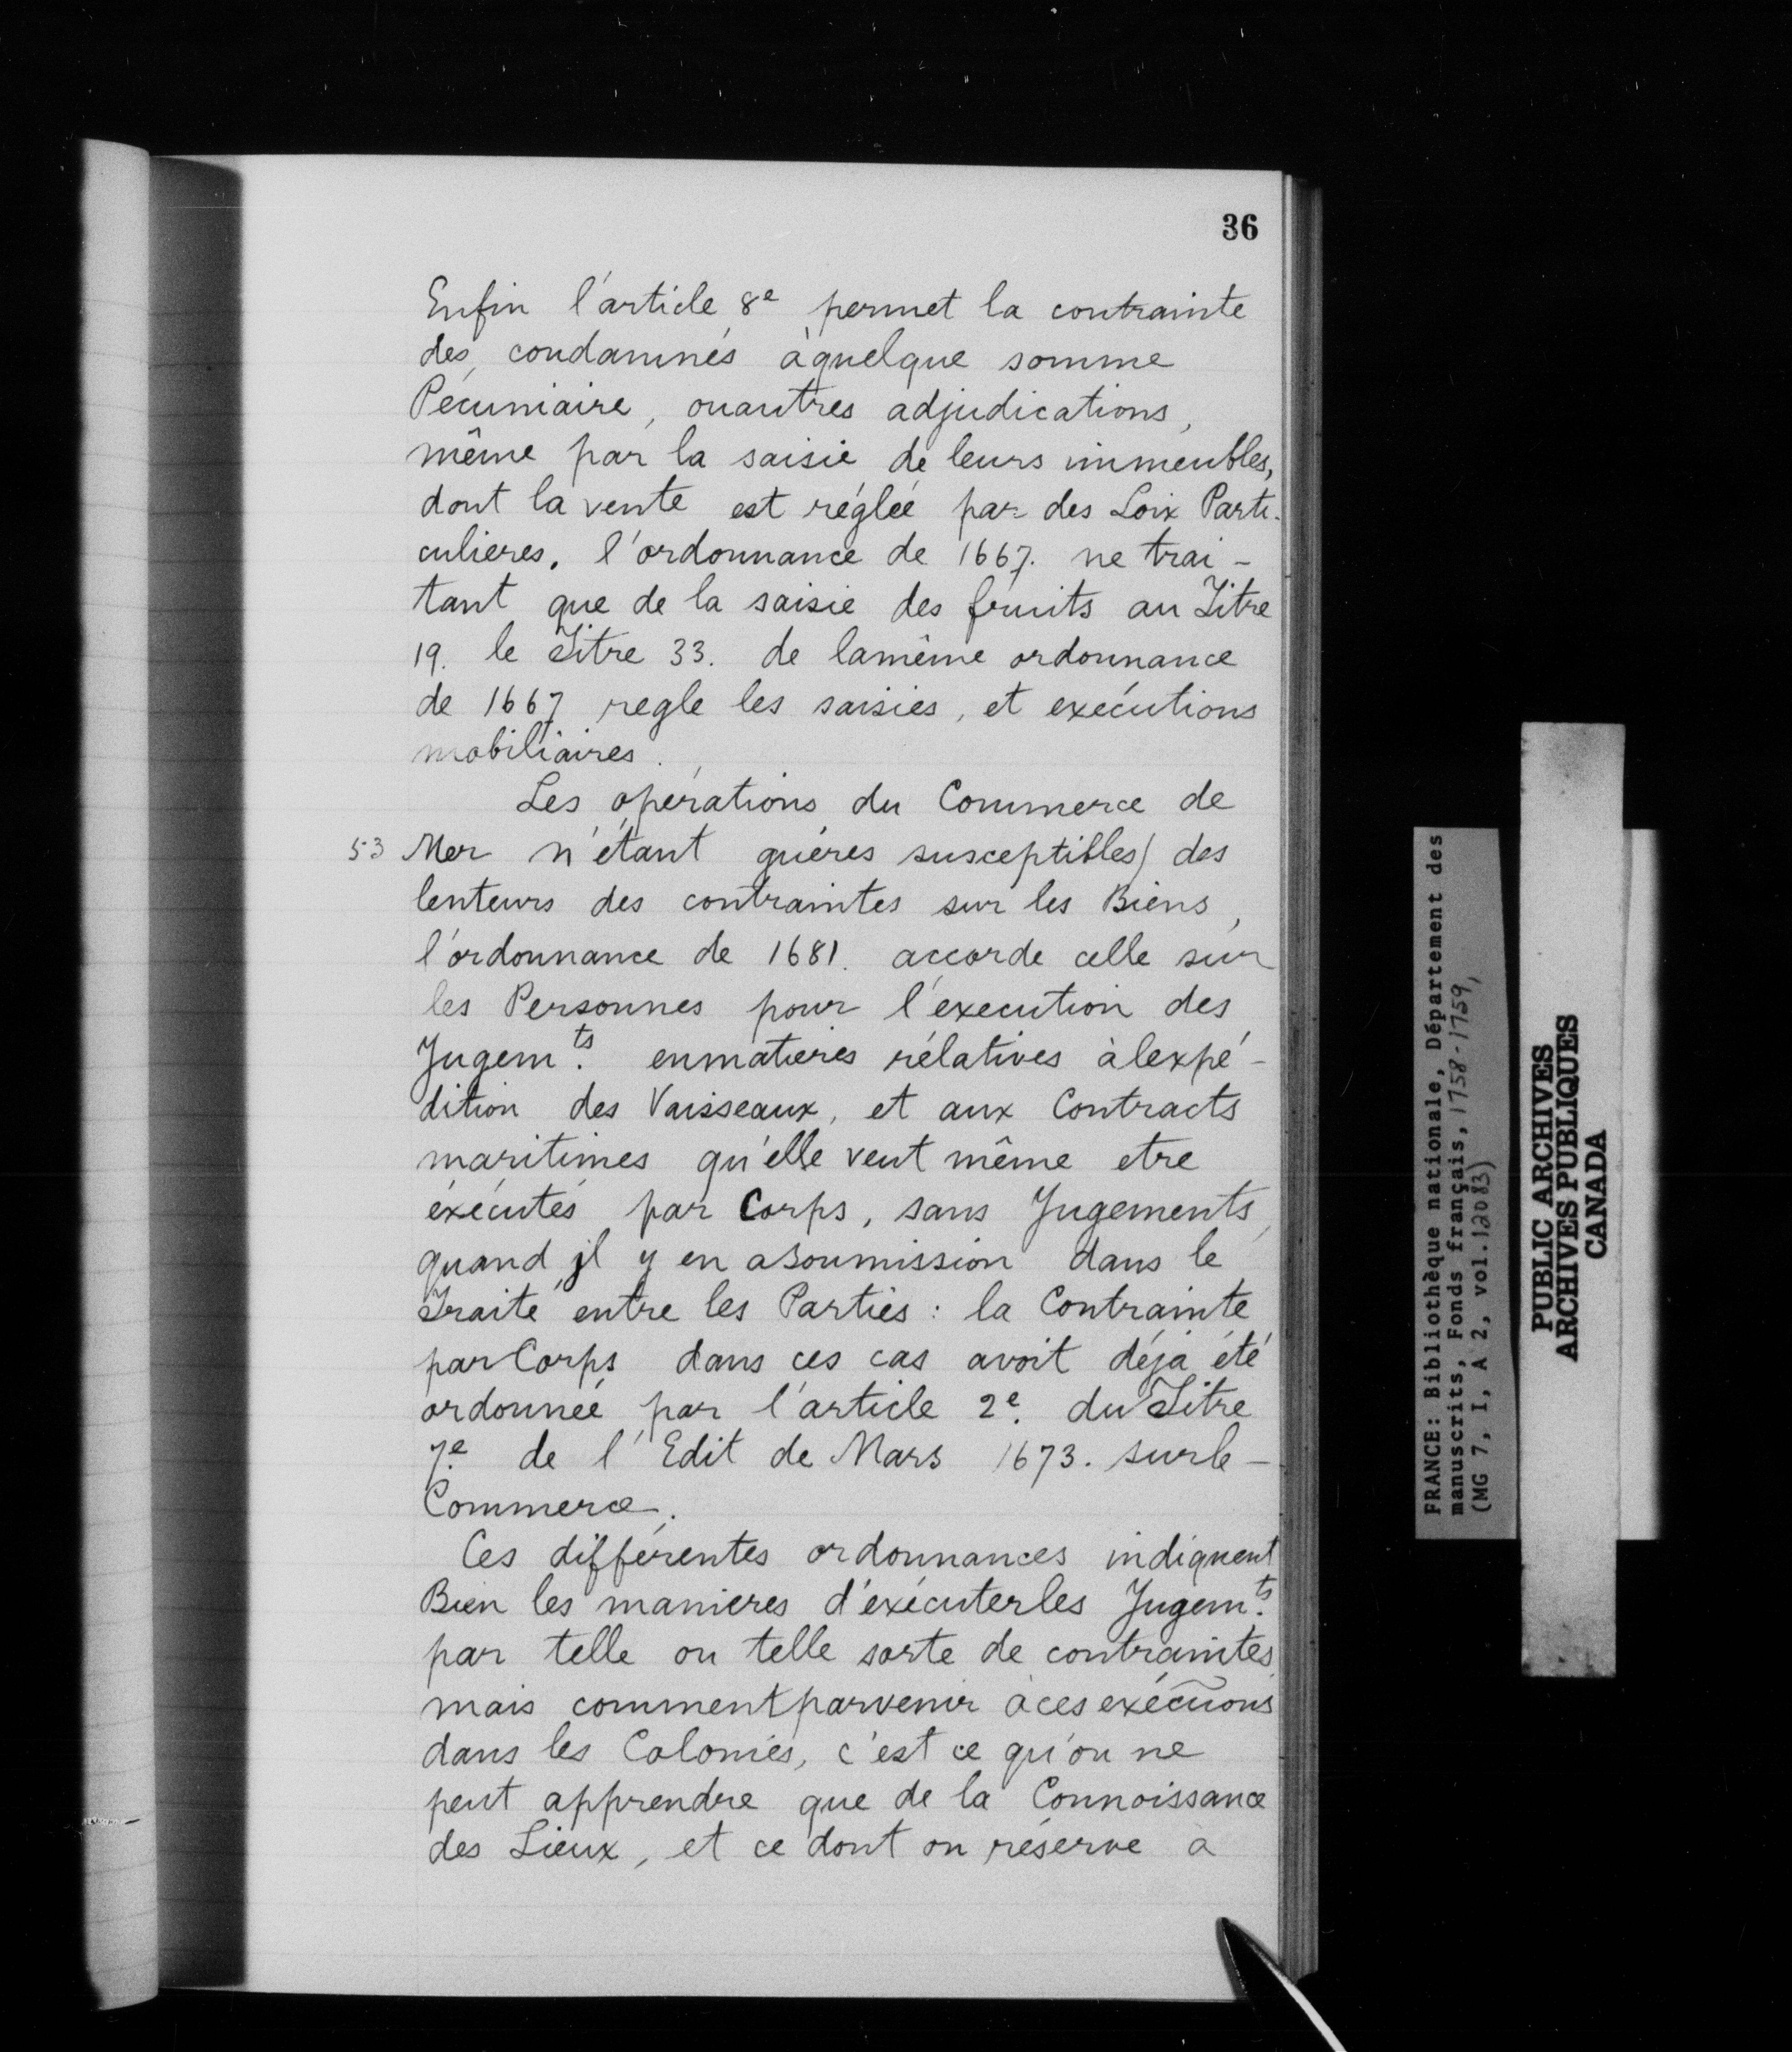 36
Enfin l'article 8e permet la contrainte
des condamnés àquelque somme
Pécuniaire, ouautres adjudications,
même par la saisie de leurs immeubles,
dont la vente est réglée par des Loix Parti-
culieres. l'ordonnance de 1667. ne trai-
tant que de la saisie des fruits au Titre
19. le Titre 33. de lamême ordonnance
de 1667 regle les saisies, et exécutions
mobiliaires.
Les opérations du Commerce de
53 Mer n'étant guères susceptibles/ des
lenteurs des contraintes sur les Biens,
l'ordonnance de 1681. accorde celle sur
les Personnes pour l'execution des
Jugem.ts enmatieres rélatives àlexpé-
dition des Vaisseaux, et aux Contracts
maritimes qu'elle veut même etre
éxécutés par Corps, sans Jugements,
quand jl y en asoumission dans le
Traité entre les Parties : la Contrainte
parCorps dans ces cas avoit déjà été
ordonnée par l'article 2e. du Titre
7e. de l'Edit de Mars 1673. surle-
Commerce.
Ces différentes ordonnances indiquent
Bien les manieres d'éxécuterles Jugem.ts
par telle ou telle sorte de contraintes,
mais commentparvenir àces exécũons
dans les Colonies, c'est ce qu'on ne
peut apprendre que de la Connoissance
des Lieux, et ce dont on réserve à
FRANCE: Bibliothèque nationale, Département des
manuscrits, Fonds français, 1758-1759,
(MG 7, I, A 2, vol.12083)
PUBLIC ARCHIVES
ARCHIVES PUBLIQUES
CANADA